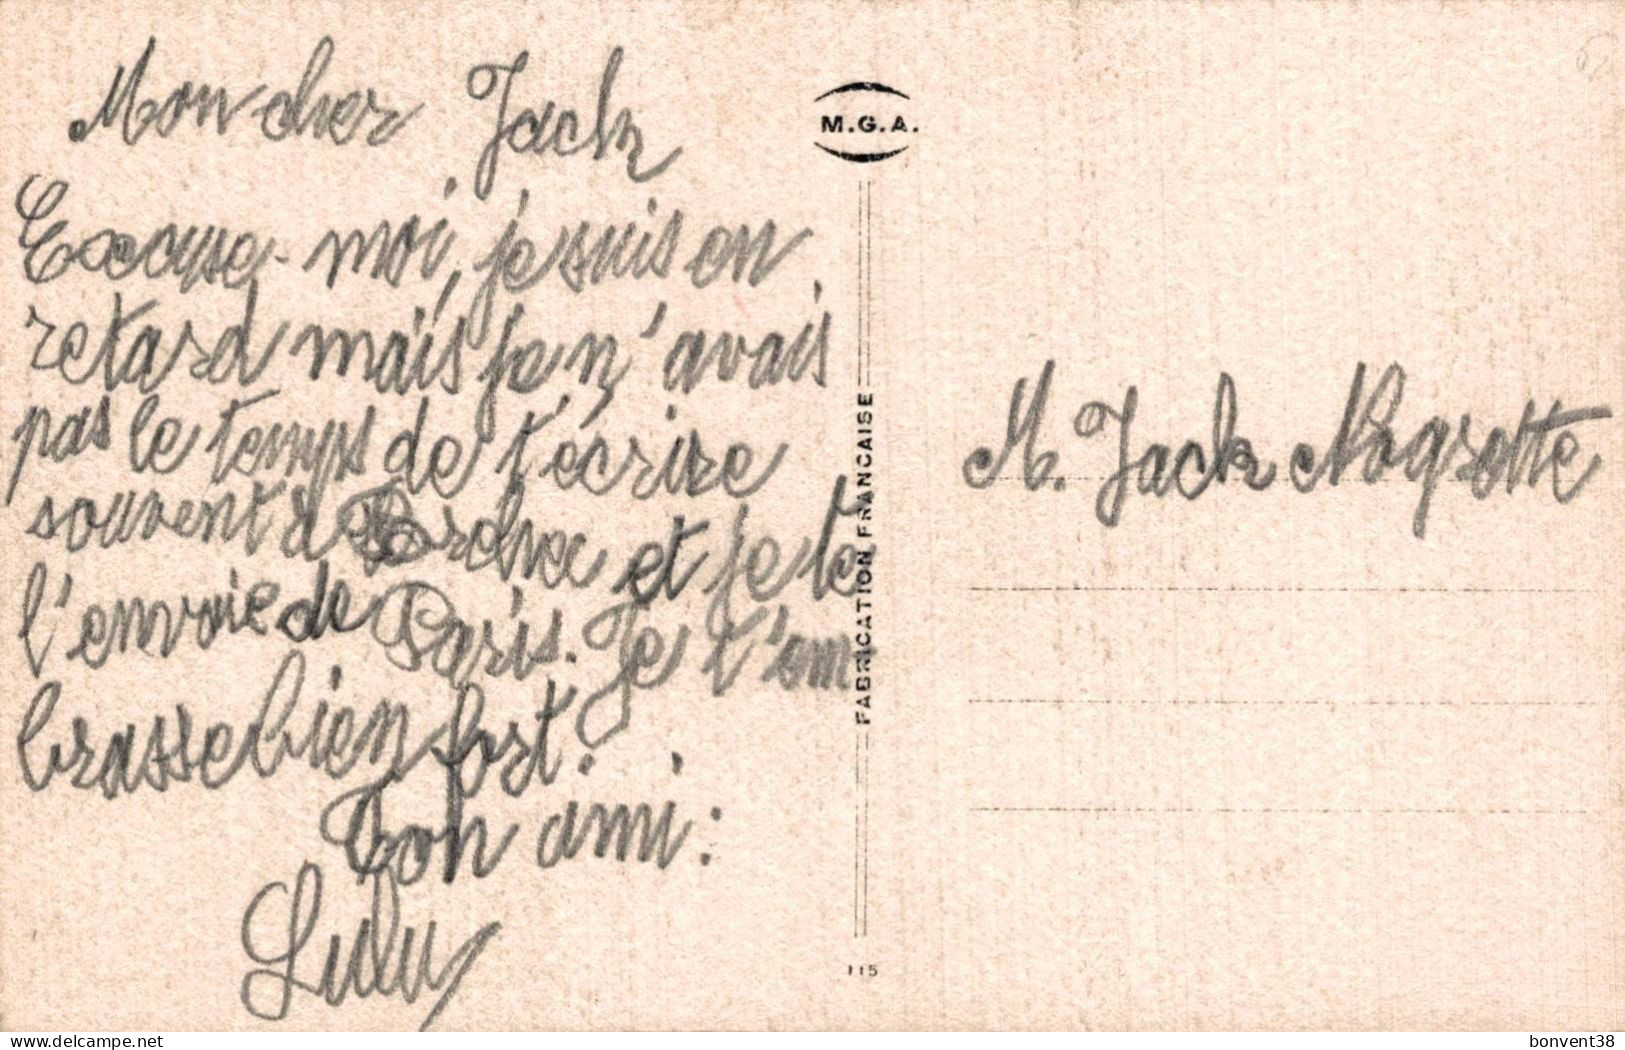 Mon cher Jack
Excuse-moi, je suis en
retard mais je n'avais
pas le temps de t'écrire
souvent d et je te
l'envoie de Paris. Je t'em
brasse bien fort.
Ton ami:
Lulu
M.G.A.
FABRICATION FRANCAISE
115
M. Jack Nogrette
delcampe.net
bonvent38